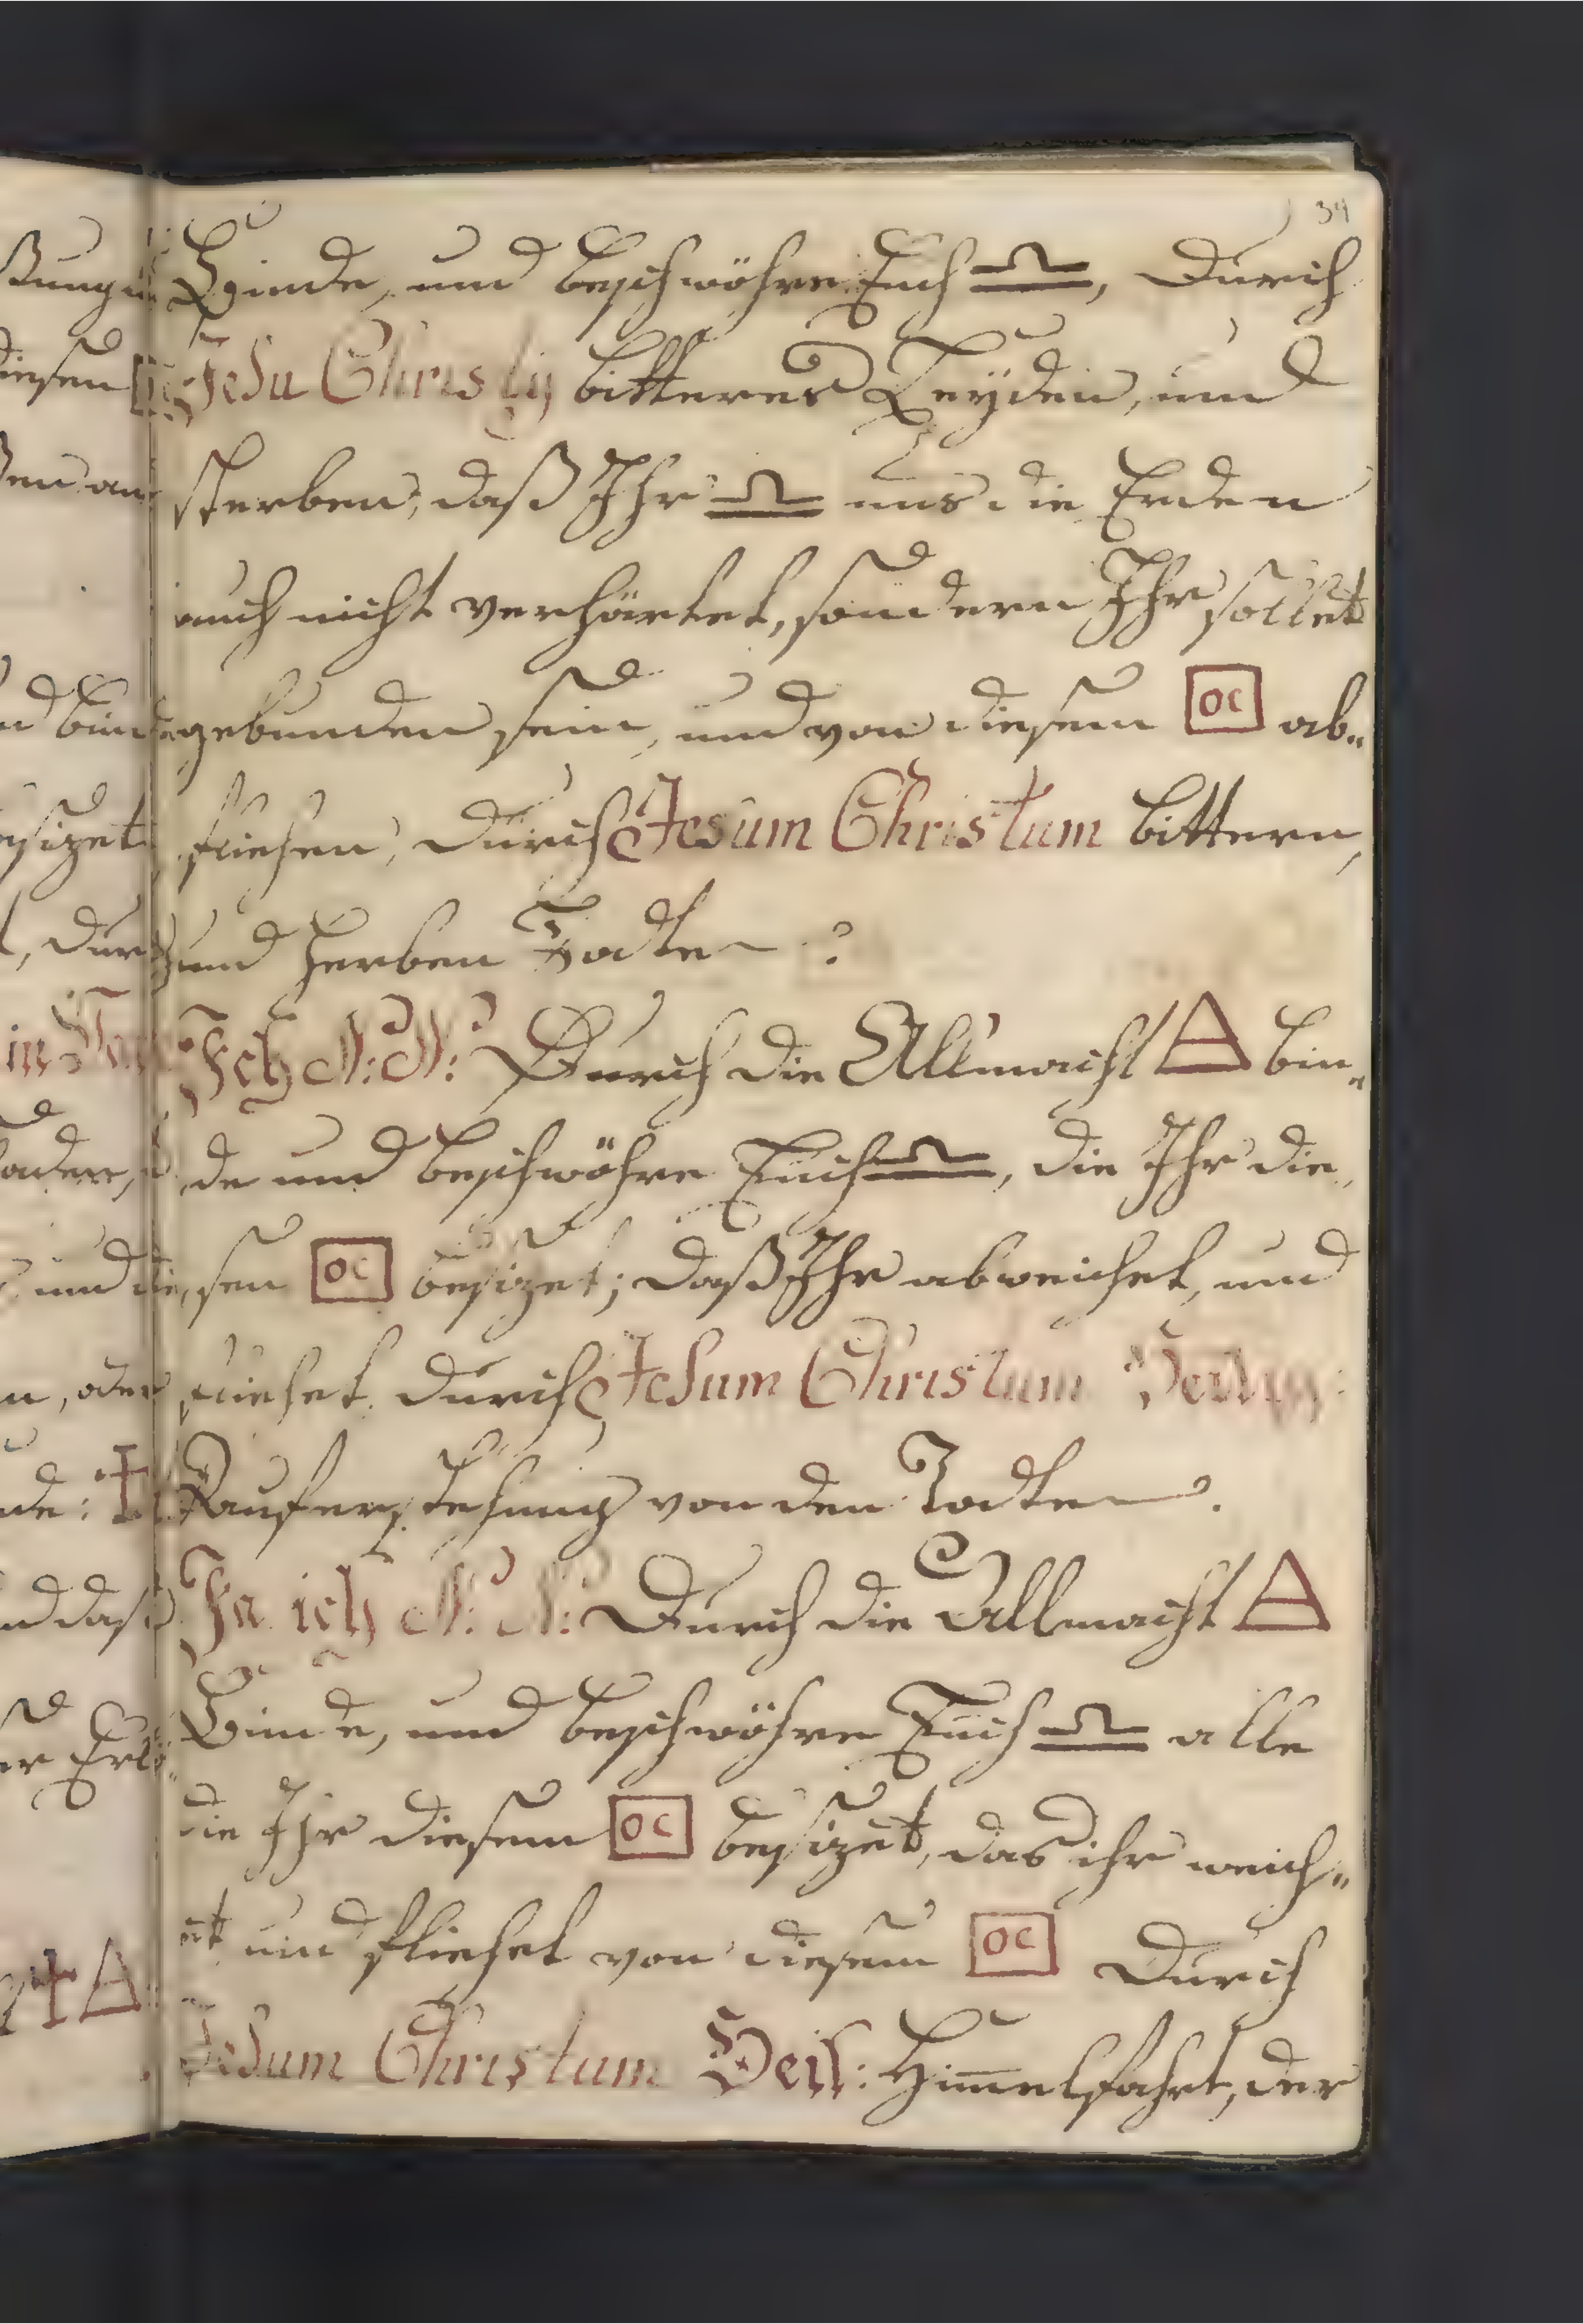 34
Binde, und beschwöhre Euch ♎, Durch
Jesu Christÿ bitteres Leÿden, und
sterben, daß Ihr ♎ uns die Erden
auch nicht verhärtet, sondern Ihr sollet
gebunden sein, und von diesem OC ab„
fliehen, durch Jesum Christum bittern,
und herben Todten
Ich N: N: Durch die Allmacht bin„
de und beschwöhre Euch ♎, die Ihr die„
sen OC besizet; daß Ihr abweichet, und
fliehet durch Jesum Christum
auferstehung von den Todten.
Ja ich N: N: Durch die Allmacht
Binde, und beschwöhre Euch ♎ alle
die Ihr diesem OC besizet, das ihr weich„
et und fliehet von diesem OC Durch
Jesum Christum Heil: Him̄elfahrt, der